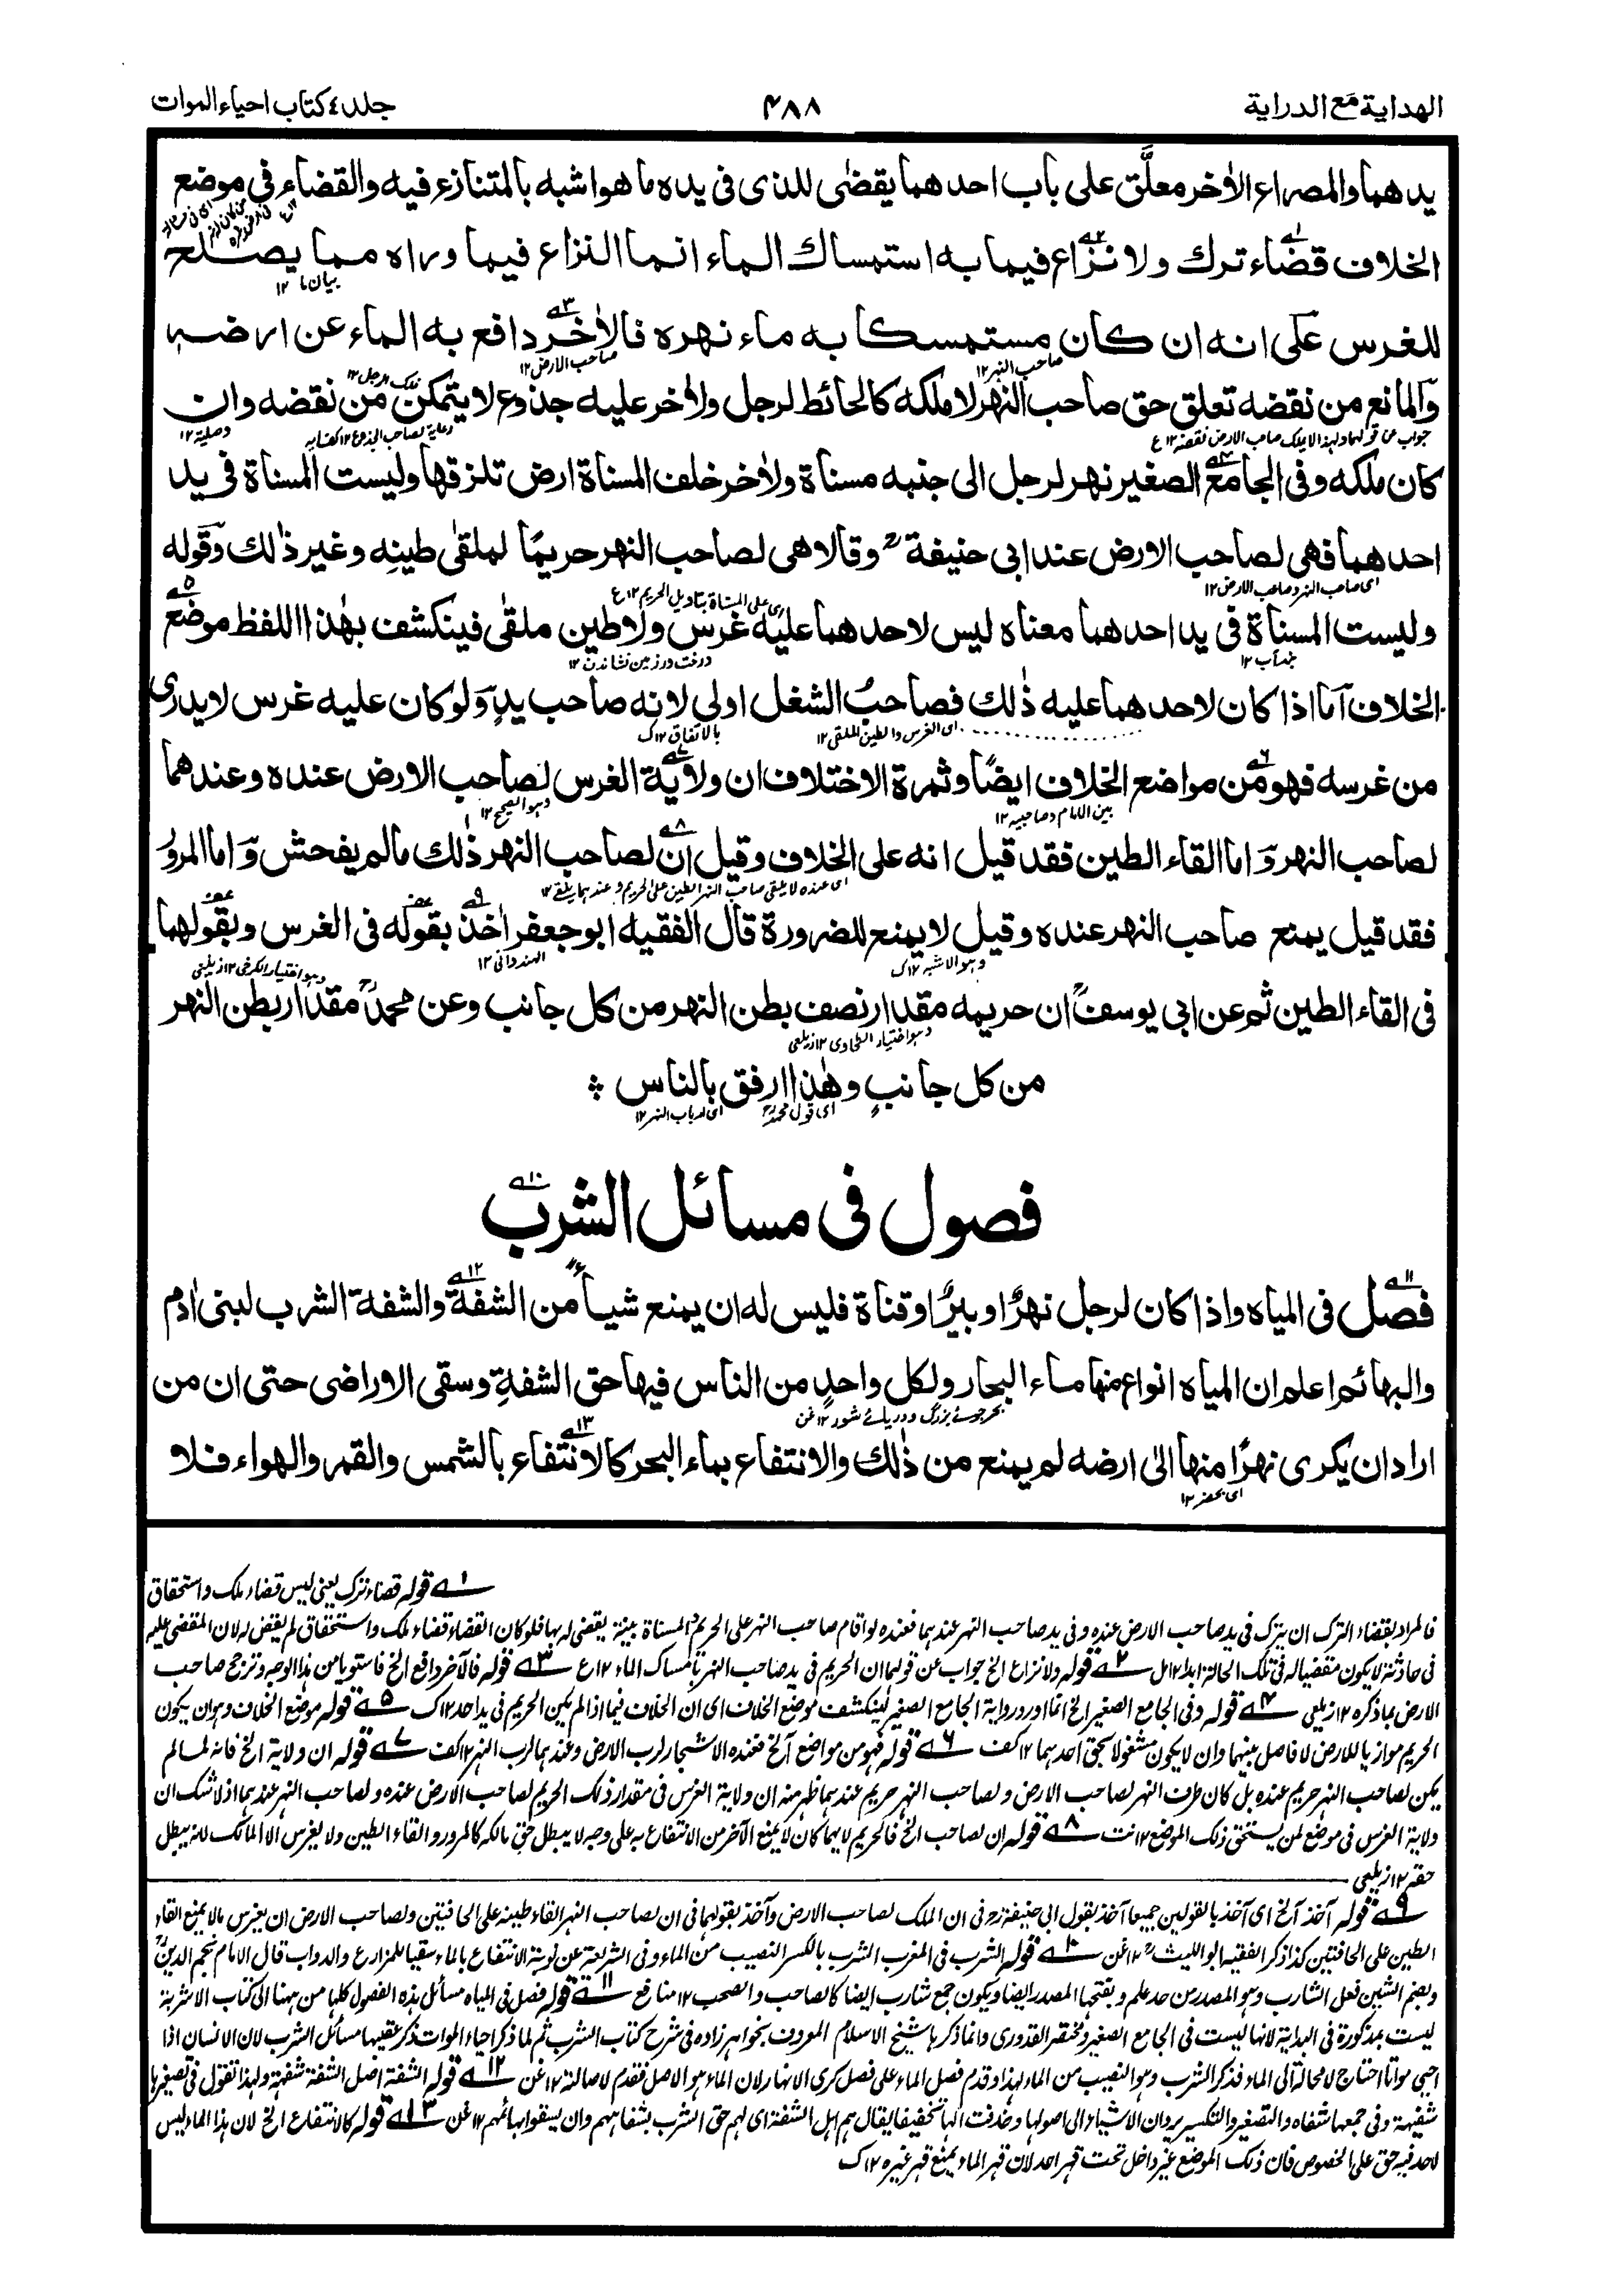 الهداية مع الدراية
۴۸۸
جلد ٤ كتاب احياء الموات
يدهما والمصراع الاٰخر معلَّق على باب احدهما يقضٰى للذى فى يده ما هو اشبه بالمتنازع فيه والقضاء فى موضع
الخلاف قضاء ترك ولا نزاع فيما به استمساك الماء انما النزاع فيما وراه مما يصلح
بيان ما ١٢
للغرس على انه ان كان مستمسكا به ماء نهره فالاٰخر دافع به الماء عن ارضه
صاحب النهر ١٢ صاحب الارض ١٢
والمانع من نقضه تعلق حق صاحب النهر لا ملكه كالحائط لرجل ولاٰخر عليه جذوع لا يتمكن من نقضه وان
جواب عن قولهما ولهذا لا يملك صاحب الارض نقضه ١٢ ع رعاية لصاحب الجذوع ١٢ كفايه وصلية ١٢
كان ملكه وفى الجامع الصغير نهر لرجل الى جنبه مسناة ولاٰخر خلف المسناة ارض تلزقها وليست المسناة فى يد
احدهما فهى لصاحب الارض عند ابى حنيفةؒ وقالا هى لصاحب النهر حريمًا لملقٰى طينهٖ وغير ذٰلك وقوله
اى صاحب النهر وصاحب الارض ١٢ اى على المسناة بتاويل الحريم ١٢ ع
وليست المسناة فى يد احدهما معناه ليس لاحدهما عليه غرس ولا طين ملقٰى فينكشف بهٰذا اللفظ موضع
بند آب ١٢ درخت در زمين نشاندن ١٢
الخلاف اما اذا كان لاحدهما عليه ذٰلك فصاحبُ الشغل اولى لانه صاحب يدٍ ولو كان عليه غرس لا يدرى
اى الغرس والطين الملقى ١٢ بالاتفاق ١٢ ك
من غرسه فهو من مواضع الخلاف ايضًا وثمرة الاختلاف ان ولاية الغرس لصاحب الارض عنده وعندهما
بين الامام وصاحبيه ١٢ وهو الصحيح ١٢
لصاحب النهر واما القاء الطين فقد قيل انه على الخلاف وقيل ان لصاحب النهر ذٰلك مالم يفحش واما المرورُ
اى عنده لا يلقى صاحب النهر الطين على الحريم وعندهما يلقى ١٢
فقد قيل يمنع صاحب النهر عنده وقيل لا يمنع للضرورة قال الفقيه ابو جعفر اٰخذ بقوله فى الغرس وبقولهما
وهو الاشبه ١٢ ك الهندوانى ١٢ وهو اختيار الكرخى ١٢ زيلعى
فى القاء الطين ثم عن ابى يوسفؒ ان حريمه مقدار نصف بطن النهر من كل جانب وعن محمدؒ مقدار بطن النهر
وهو اختيار الطحاوى ١٢ زيلعى
من كل جانبٍ وهٰذا ارفق بالناس
اى قول محمدؒ اى ارباب النهر ١٢
فصول فى مسائل الشرب
فصل فى المياه واذا كان لرجل نهرٌ او بيرٌ او قناة فليس له ان يمنع شيأً من الشفة والشفة الشرب لبنى اٰدم
والبهائم اعلم ان المياه انواع منها ماء البحار ولكل واحدٍ من الناس فيها حق الشفةِ وسقى الاراضى حتى ان من
بحر جوئے بزرگ ودریائے شور ١٢ غن
اراد ان يكرى نهرًا منها الى ارضه لم يمنع من ذٰلك والانتفاع بماء البحر كالانتفاع بالشمس والقمر والهواء فلا
اى يحفر ١٢
١ قوله قضاء ترك يعنى ليس قضاء ملك واستحقاق
فالمراد بقضاء الترك ان يترك فى يد صاحب الارض عنده وفى يد صاحب النهر عندهما فعنده لو اقام صاحب النهر على الحريم والمسناة بينة يقضى له بها فلو كان القضاء قضاء ملك واستحقاق لم يقض له لان المقضى عليه
فى حادثة لا يكون مقضيا له فى تلك الحالة ابدا ١٢ ٢ قوله ولا نزاع الخ جواب عن قولهما ان الحريم فى يد صاحب النهر بامساك الماء ١٢ ع ٣ قوله فالآخر دافع الخ فاستويا من هذا الوجه وترجح صاحب
الارض بما ذكره ١٢ زيلعى ٤ قوله وفى الجامع الصغير الخ انما اورد رواية الجامع الصغير لينكشف موضع الخلاف اى ان الخلاف فيما اذا لم يكن الحريم فى يد احد ١٢ ك ٥ قوله موضع الخلاف وهو ان يكون
الحريم موازيا للارض لا فاصل بينهما وان لا يكون مشغولا بحق احدهما ١٢ كف ٦ قوله فهو من مواضع الخ فعنده الاشجار لرب الارض وعندهما لرب النهر ١٢ كف ٧ قوله ان ولاية الخ فانه لما لم
يكن لصاحب النهر حريم عنده بل كان طرف النهر لصاحب الارض ولصاحب النهر حريم عندهما ظهر منه ان ولاية الغرس فى مقدار ذلك الحريم لصاحب الارض عنده ولصاحب النهر عندهما اذ لا شك ان
ولاية الغرس فى موضع لمن يستحق ذلك الموضع ١٢ نت ٨ قوله ان لصاحب الخ فالحريم لايهما كان لا يمنع الآخر من الانتفاع به على وجه لا يبطل حق مالكه كالمرور والقاء الطين ولا يغرس الا المالك لانه يبطل
حقه ١٢ زيلعى
٩ قوله آخذ الخ اى آخذ بالقولين جميعا آخذ بقول ابى حنيفةؒ فى ان الملك لصاحب الارض وآخذ بقولهما فى ان لصاحب النهر القاء طينه على الحافتين ولصاحب الارض ان يغرس ما لا يمنع القاء
الطين على الحافتين كذا ذكر الفقيه ابو الليثؒ ١٢ غن ١٠ قوله الشرب فى المغرب الشرب بالكسر النصيب من الماء وفى الشريعة عن نوبة الانتفاع بالماء سقيا للمزارع والدواب قال الامام نجم الدينؒ
وبضم الشين فعل الشارب وهو المصدر من حد علم وبفتحها المصدر ايضا ويكون جمع شارب ايضا كالصاحب والصحب ١٢ ١١ قوله فصل فى المياه مسائل هذه الفصول كلها من ههنا الى كتاب الاشربة
ليست بمذكورة فى البداية لانها ليست فى الجامع الصغير ومختصر القدورى وانما ذكرها شيخ الاسلام المعروف بخواهر زاده فى شرح كتاب الشرب ثم لما ذكر احياء الموات ذكر عقيبها مسائل الشرب لان الانسان اذا
احيى مواتا احتاج لا محالة الى الماء فذكر الشرب وهو النصيب من الماء لهذا وقدم فصل الماء على فصل كرى الانهار لان الماء هو الاصل فقدم لاصالته ١٢ غن ١٢ قوله الشفة اصل الشفة شفهة ولهذا تقول فى تصغيرها
شفيهة وفى جمعها شفاه والتصغير والتكسير يردان الاشياء الى اصولها وحذفت الهاء تخفيفا يقال هم اهل الشفة اى لهم حق الشرب بشفاههم وان يسقوا بهائمهم ١٢ غن ١٣ قوله كالانتفاع الخ لان هذا الماء ليس
لاحد فيه حق على الخصوص فان ذلك الموضع غير داخل تحت قهر احد لان قهر الماء يمنع قهر غيره ١٢ ك